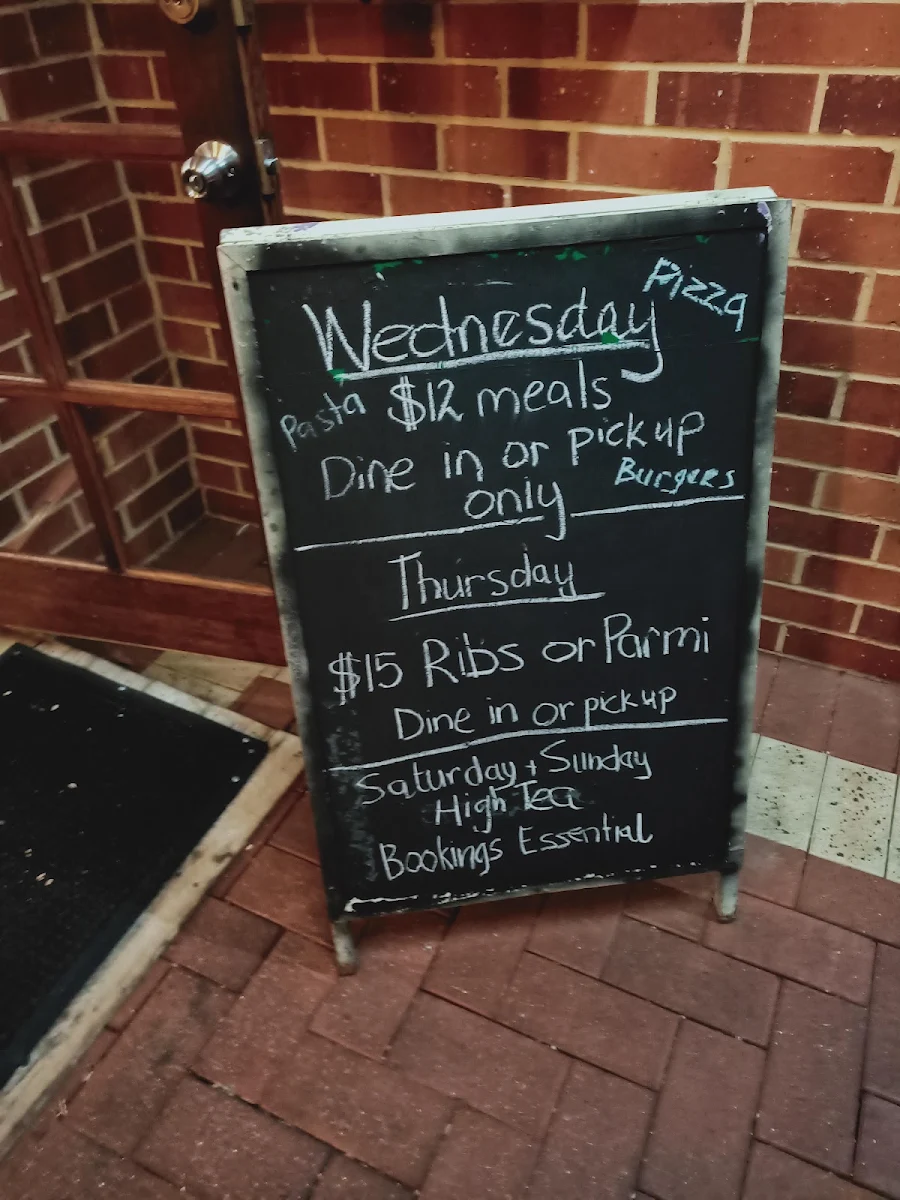 Pizza
Wednesday
Pasta $12 meals
Dine in or pick up
Burgers
only
Thursday
$15 Ribs or Parmi
Dine in or pick up
Saturday + Sunday
High Tea
Bookings Essential